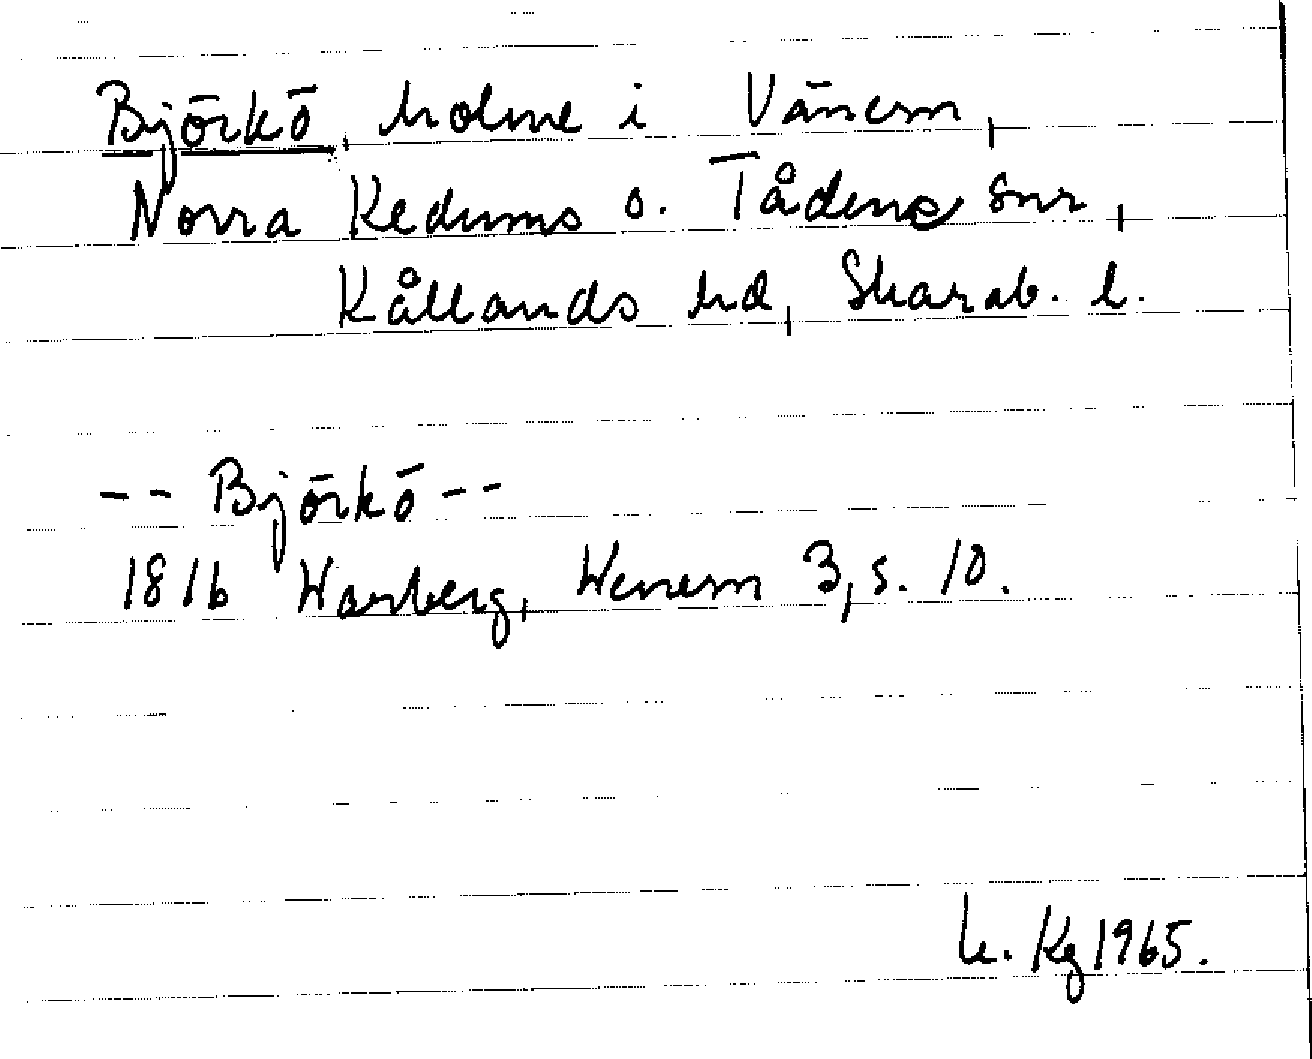 Björkö, holme i Vänern,
Norra Kedums o. Tådene snr,
Kållands hd, Skarab. l.
-- Björkö --
1816 Warberg, Wenern 3, s. 10.
Kg 1965.